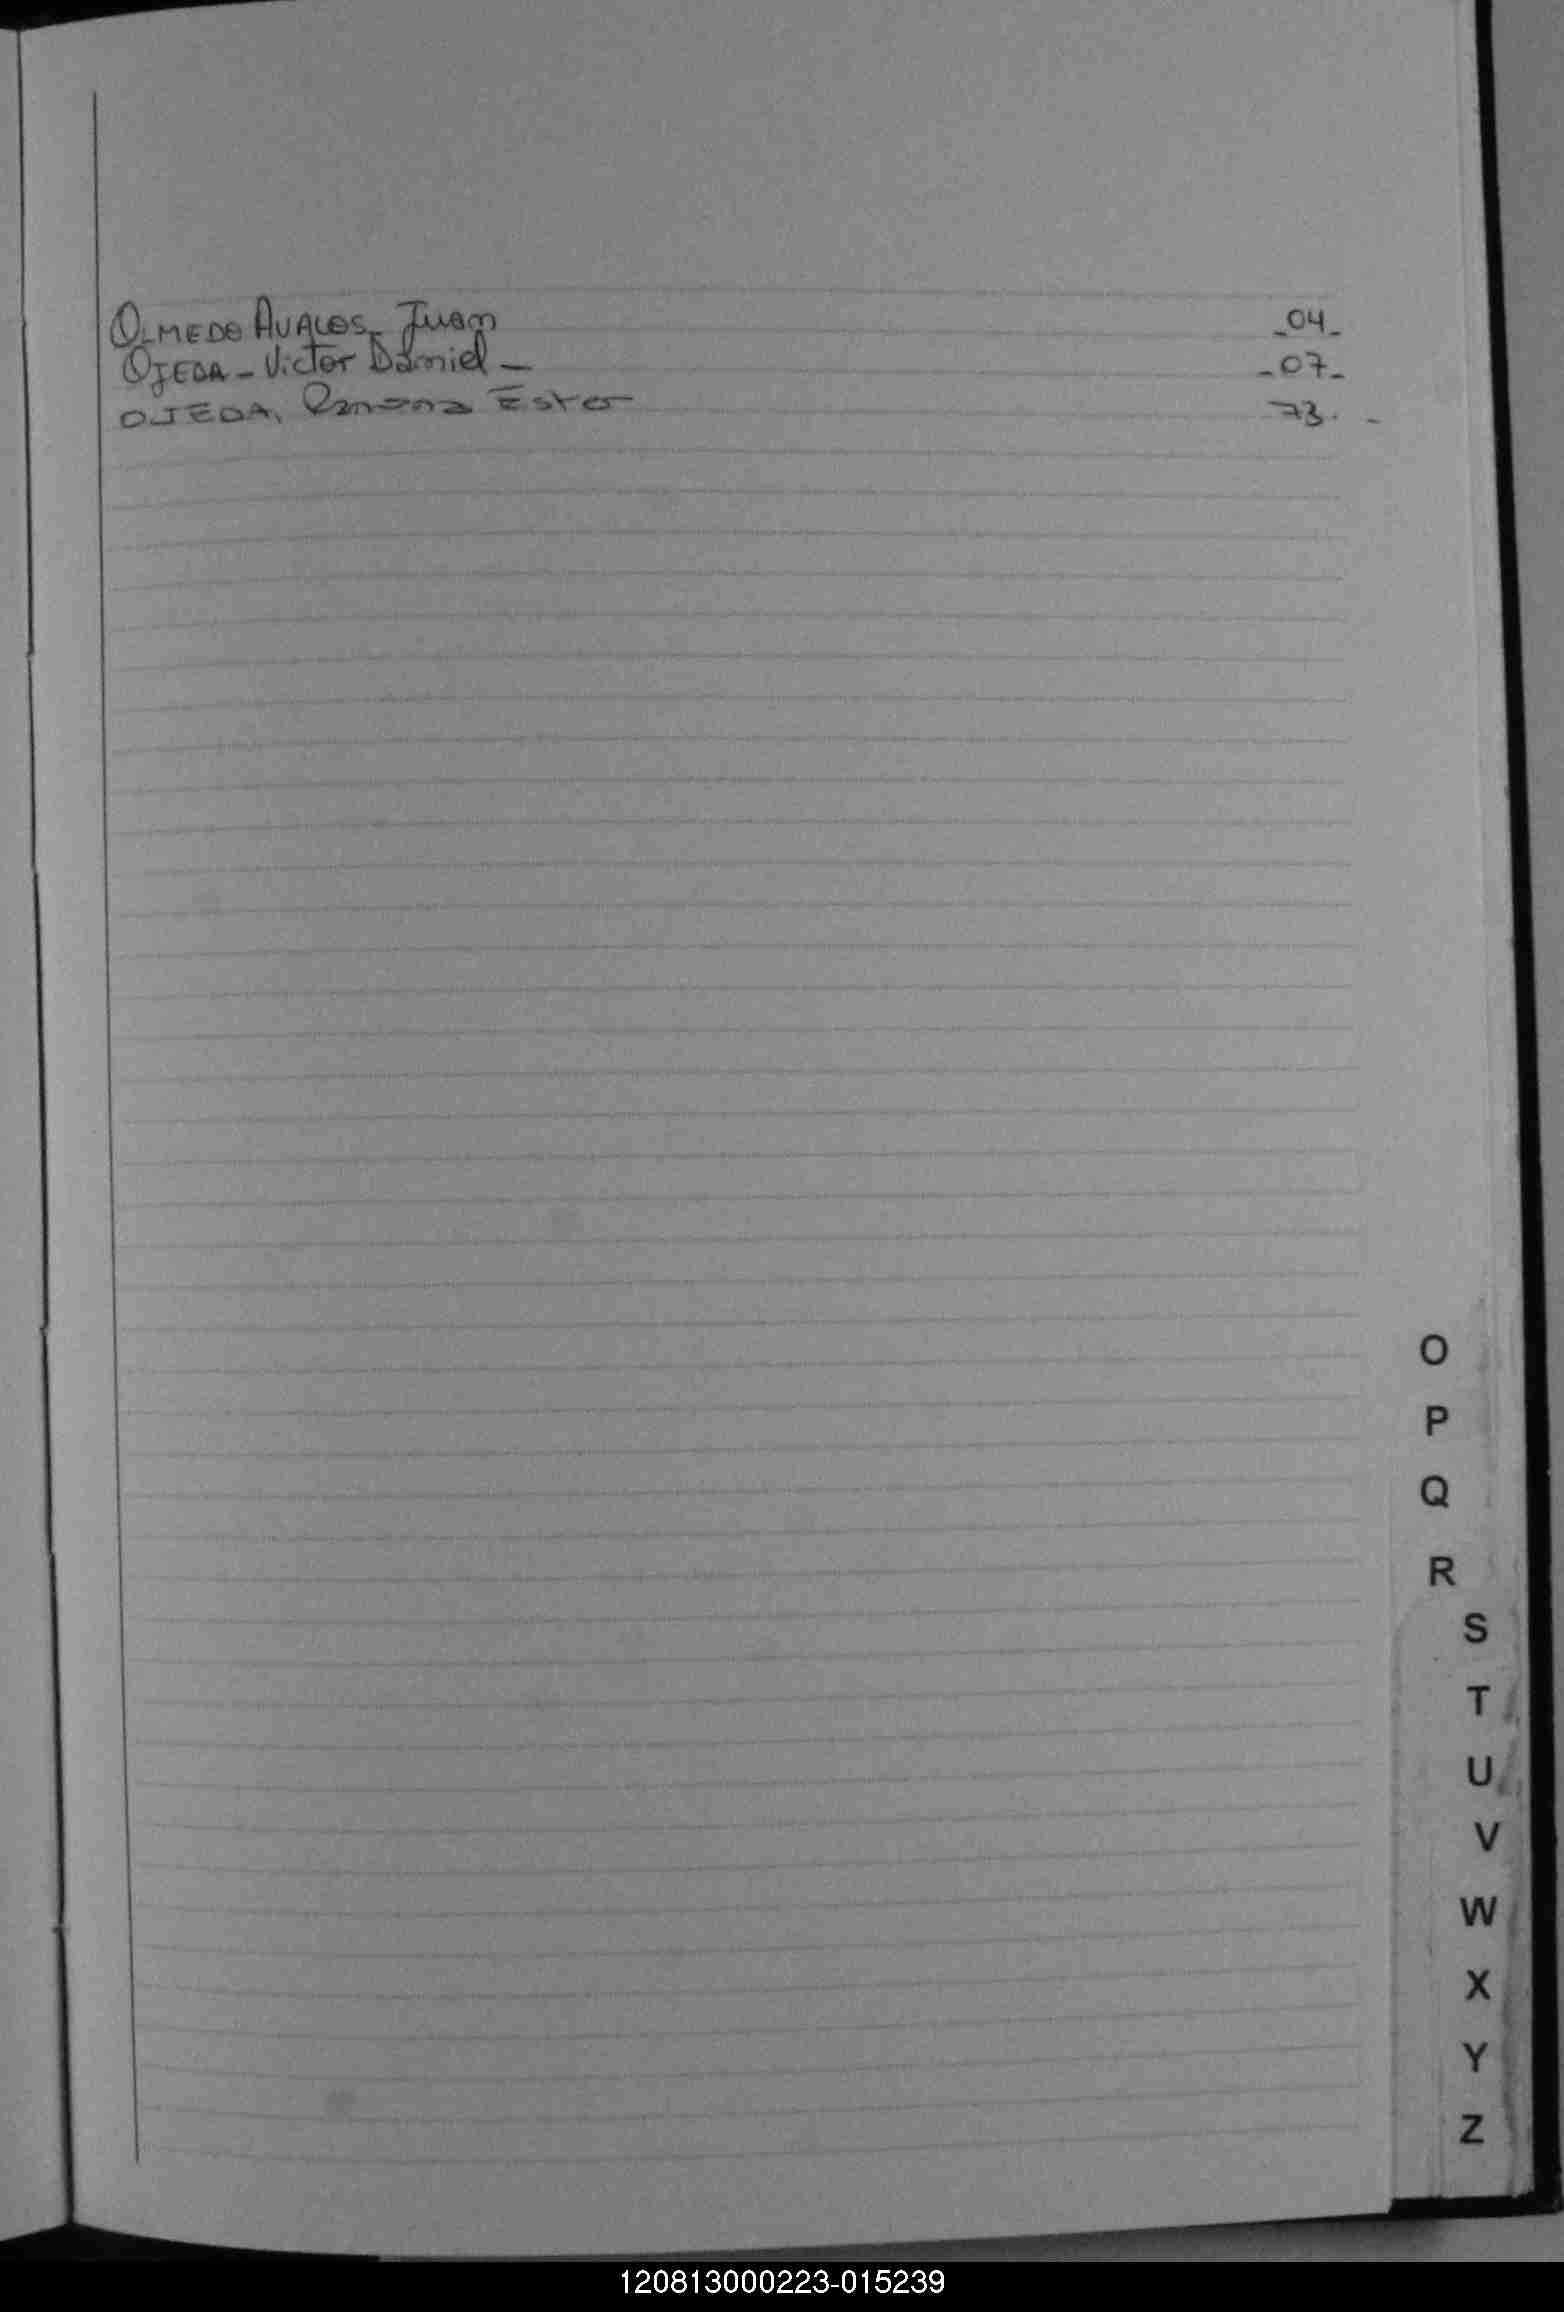 OLMEDO AVALOS_ Juan _04_
OJEDA - Victor Damiel - -07-
OJEDA, Ramona Ester 73. -
O
P
Q
R
S
T
U
V
W
X
Y
Z
120813000223-015239